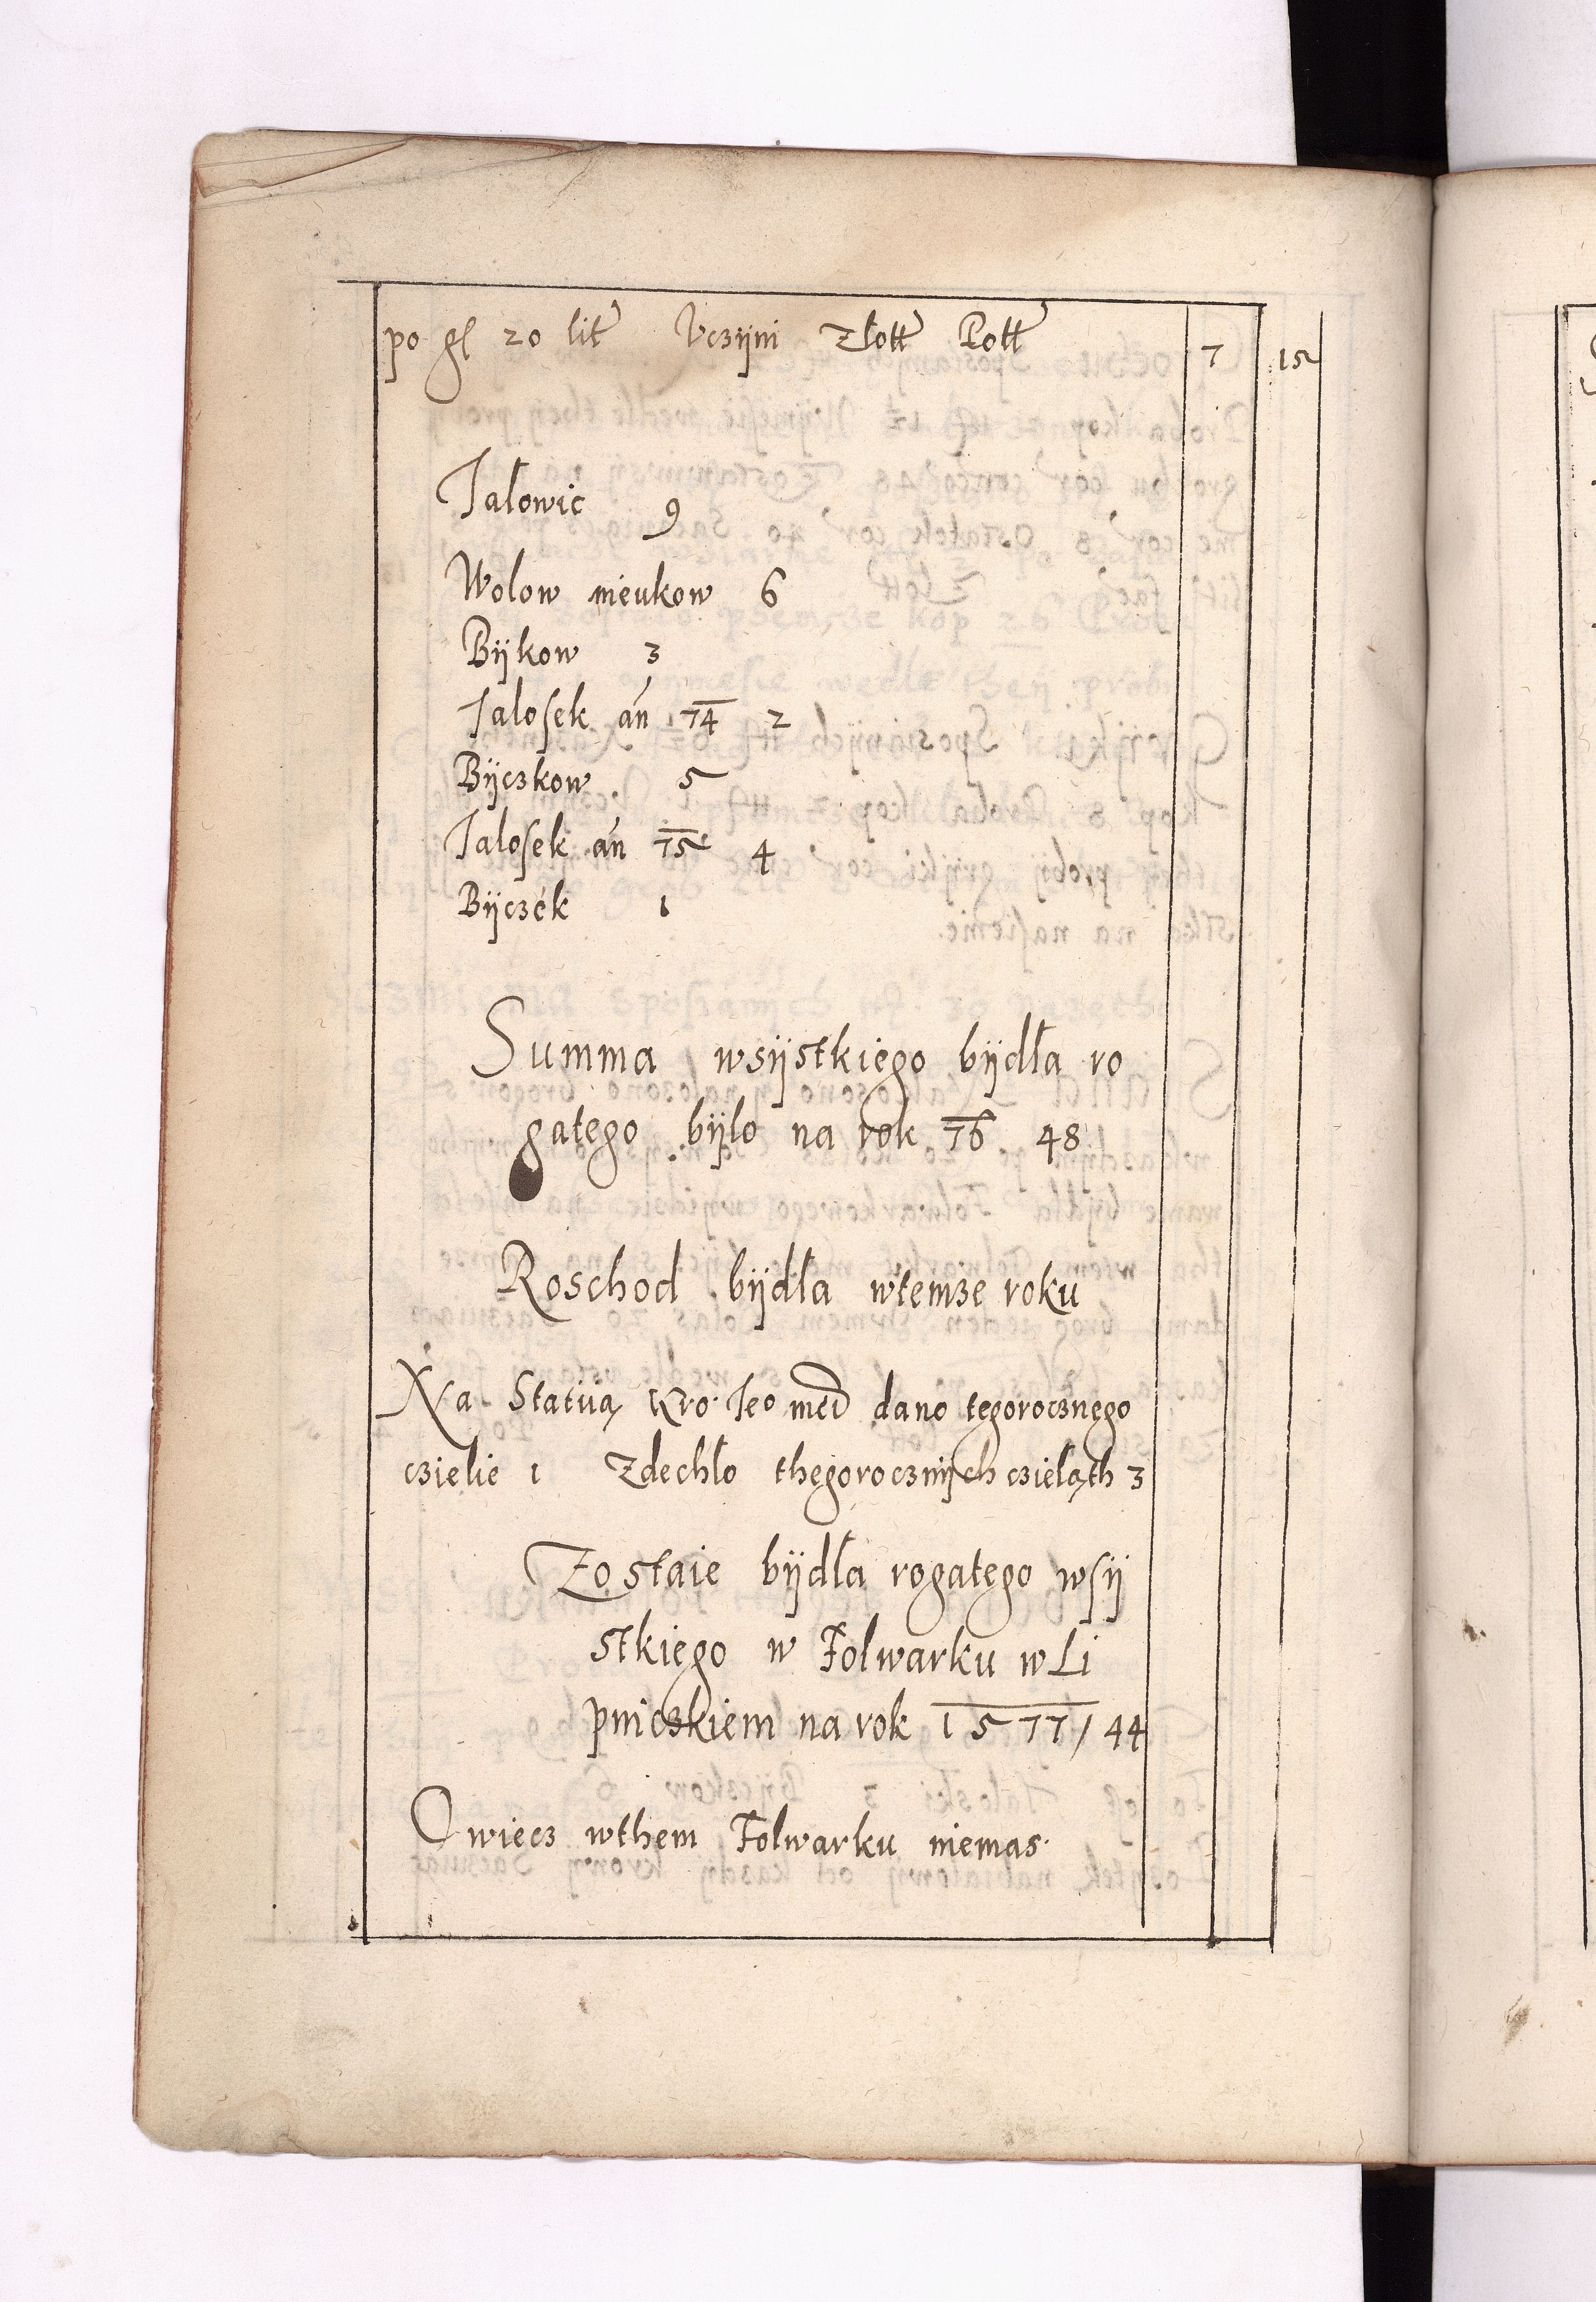 po gl 20 lit Vczÿni Złott Pott 7 15
Jalowic 9
Wolow nieukow 6
Bÿkow 3
Jalosek an 74 2
Bÿczkow 5
Jalosek an 75 4
Bÿczek 1
Summa wsÿstkiego bÿdła ro
gatego bÿlo na rok 76 48
Roschod bÿdła wtemze roku
Na Statiią Kro Jeo mci dano tegorocznego
czielie 1 Zdechło thegorocznÿch czieląth 3
Zostaie bÿdła rogatego wsÿ
stkiego w Folwarku w Li
pniczkiem na rok 1577 / 44
Owiecz wthem Folwarku niemas.